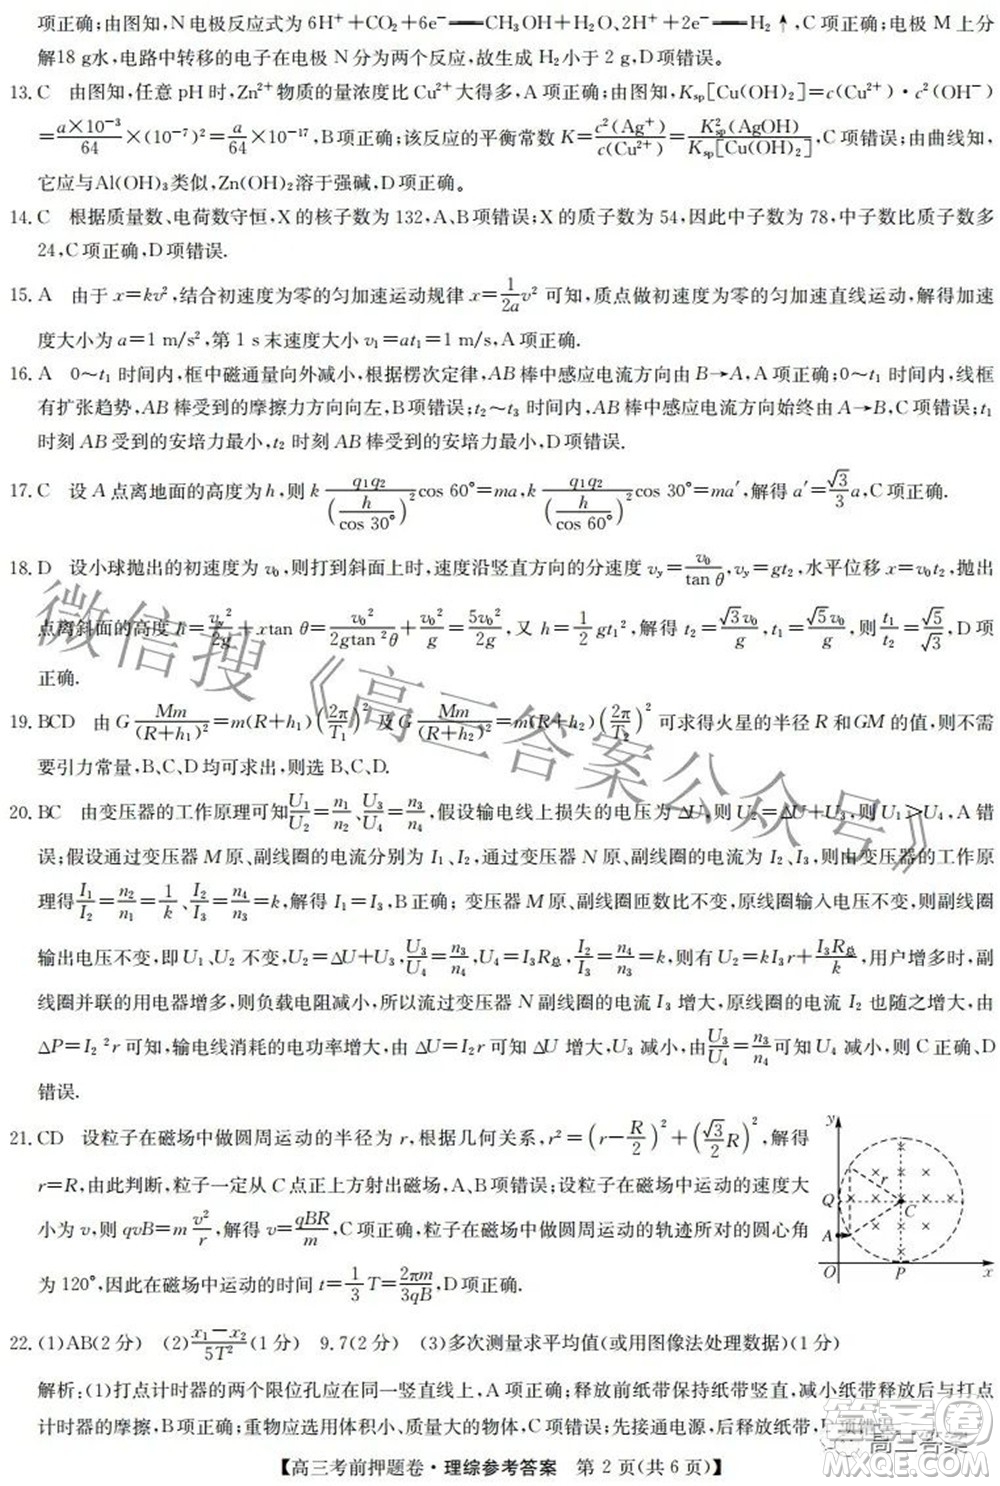 项正确;由图知,N电极反应式为 6H⁺+CO₂+6e⁻══CH₃OH+H₂O、2H⁺+2e⁻══H₂↑,C项正确;电极 M 上分
解18 g水,电路中转移的电子在电极 N 分为两个反应,故生成 H₂小于 2 g,D项错误。
13. C 由图知,任意 pH 时,Zn²⁺物质的量浓度比 Cu²⁺大得多,A 项正确;由图知,Ksp[Cu(OH)₂]=c(Cu²⁺)·c²(OH⁻)
=a×10⁻³/64×(10⁻⁷)²=a/64×10⁻¹⁷,B项正确;该反应的平衡常数 K=c²(Ag⁺)/c(Cu²⁺)=K²sp(AgOH)/Ksp[Cu(OH)₂],C项错误;由曲线知,
它应与Al(OH)₃类似,Zn(OH)₂溶于强碱,D项正确。
14. C 根据质量数、电荷数守恒,X 的核子数为 132,A、B项错误;X 的质子数为 54,因此中子数为 78,中子数比质子数多
24,C 项正确,D项错误.
15. A 由于 x=kv²,结合初速度为零的匀加速运动规律 x=1/2a v² 可知,质点做初速度为零的匀加速直线运动,解得加速
度大小为 a=1 m/s²,第 1 s末速度大小 v₁=at₁=1 m/s,A项正确.
16. A 0～t₁ 时间内,框中磁通量向外减小,根据楞次定律,AB 棒中感应电流方向由 B→A,A 项正确;0～t₁ 时间内,线框
有扩张趋势,AB 棒受到的摩擦力方向向左,B项错误;t₂～t₃ 时间内,AB 棒中感应电流方向始终由 A→B,C 项错误;t₁
时刻 AB 受到的安培力最小,t₂ 时刻 AB 棒受到的安培力最小,D项错误.
17. C 设 A 点离地面的高度为 h,则 k q₁q₂/(h/cos 30°)² cos 60°=ma,k q₁q₂/(h/cos 60°)² cos 30°=ma′,解得 a′=√3/3 a,C 项正确.
18. D 设小球抛出的初速度为 v₀,则打到斜面上时,速度沿竖直方向的分速度 vy=v₀/tan θ,vy=gt₂,水平位移 x=v₀t₂,抛出
点离斜面的高度 h=vy²/2g+xtan θ=v₀²/2gtan²θ+v₀²/g=5v₀²/2g,又 h=1/2 gt₁²,解得 t₂=√3v₀/g,t₁=√5v₀/g,则 t₁/t₂=√5/√3,D 项
正确.
19. BCD 由 G Mm/(R+h₁)²=m(R+h₁)(2π/T₁)² 及 G Mm/(R+h₂)²=m(R+h₂)(2π/T₂)² 可求得火星的半径 R 和GM 的值,则不需
要引力常量,B、C、D 均可求出,则选 B、C、D.
20. BC 由变压器的工作原理可知U₁/U₂=n₁/n₂、U₃/U₄=n₃/n₄,假设输电线上损失的电压为 ΔU,则 U₂=ΔU+U₃,则 U₁>U₄,A 错
误;假设通过变压器 M 原、副线圈的电流分别为 I₁、I₂,通过变压器 N 原、副线圈的电流为 I₂、I₃,由变压器的工作原
理得I₁/I₂=n₂/n₁=1/k、I₂/I₃=n₄/n₃=k,解得 I₁=I₃,B正确;变压器 M 原、副线圈匝数比不变,原线圈输入电压不变,则副线圈
输出电压不变,即 U₁、U₂ 不变,U₂=ΔU+U₃,U₃/U₄=n₃/n₄,U₄=I₃R总,I₂/I₃=n₄/n₃=k,则有 U₂=kI₃r+I₃R总/k,用户增多时,
副线圈并联的用电器增多,则负载电阻减小,所以流过变压器 N 副线圈的电流 I₃ 增大,原线圈的电流 I₂ 也随之增大,由
ΔP=I₂²r 可知,输电线消耗的电功率增大,由 ΔU=I₂r 可知 ΔU 增大,U₃ 减小,由U₃/U₄=n₃/n₄可知U₄ 减小,则 C正确、D
错误.
21. CD 设粒子在磁场中做圆周运动的半径为 r,根据几何关系,r²=(r-R/2)²+(√3/2 R)²,解得
r=R,由此判断,粒子一定从 C点正上方射出磁场,A、B项错误;设粒子在磁场中运动的速度大
小为 v,则 qvB=m v²/r,解得 v=qBR/m,C项正确;粒子在磁场中做圆周运动的轨迹所对的圆心角
为 120°,因此在磁场中运动的时间 t=1/3 T=2πm/3qB,D项正确.
y
r
Q
C
A
O
P
x
22. (1)AB(2 分) (2)x₁-x₂/5T²(1 分) 9.7(2 分) (3)多次测量求平均值(或用图像法处理数据)(1 分)
解析:(1)打点计时器的两个限位孔应在同一竖直线上,A 项正确;释放前纸带保持纸带竖直,减小纸带释放后与打点
计时器的摩擦,B项正确;重物应选用体积小、质量大的物体,C项错误;先接通电源,后释放纸带,D项错误.
【高三考前押题卷·理综参考答案 第 2 页(共 6 页)】
微信搜《高三答案公众号》
答案圈
高三答案
MXQE.COM